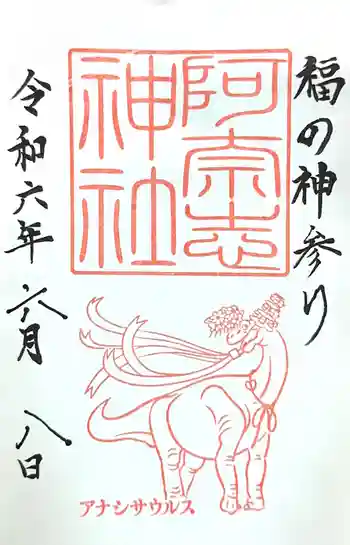 福の神参り
阿宗志
神社
令和六年 六月 八日
アナシサウルス